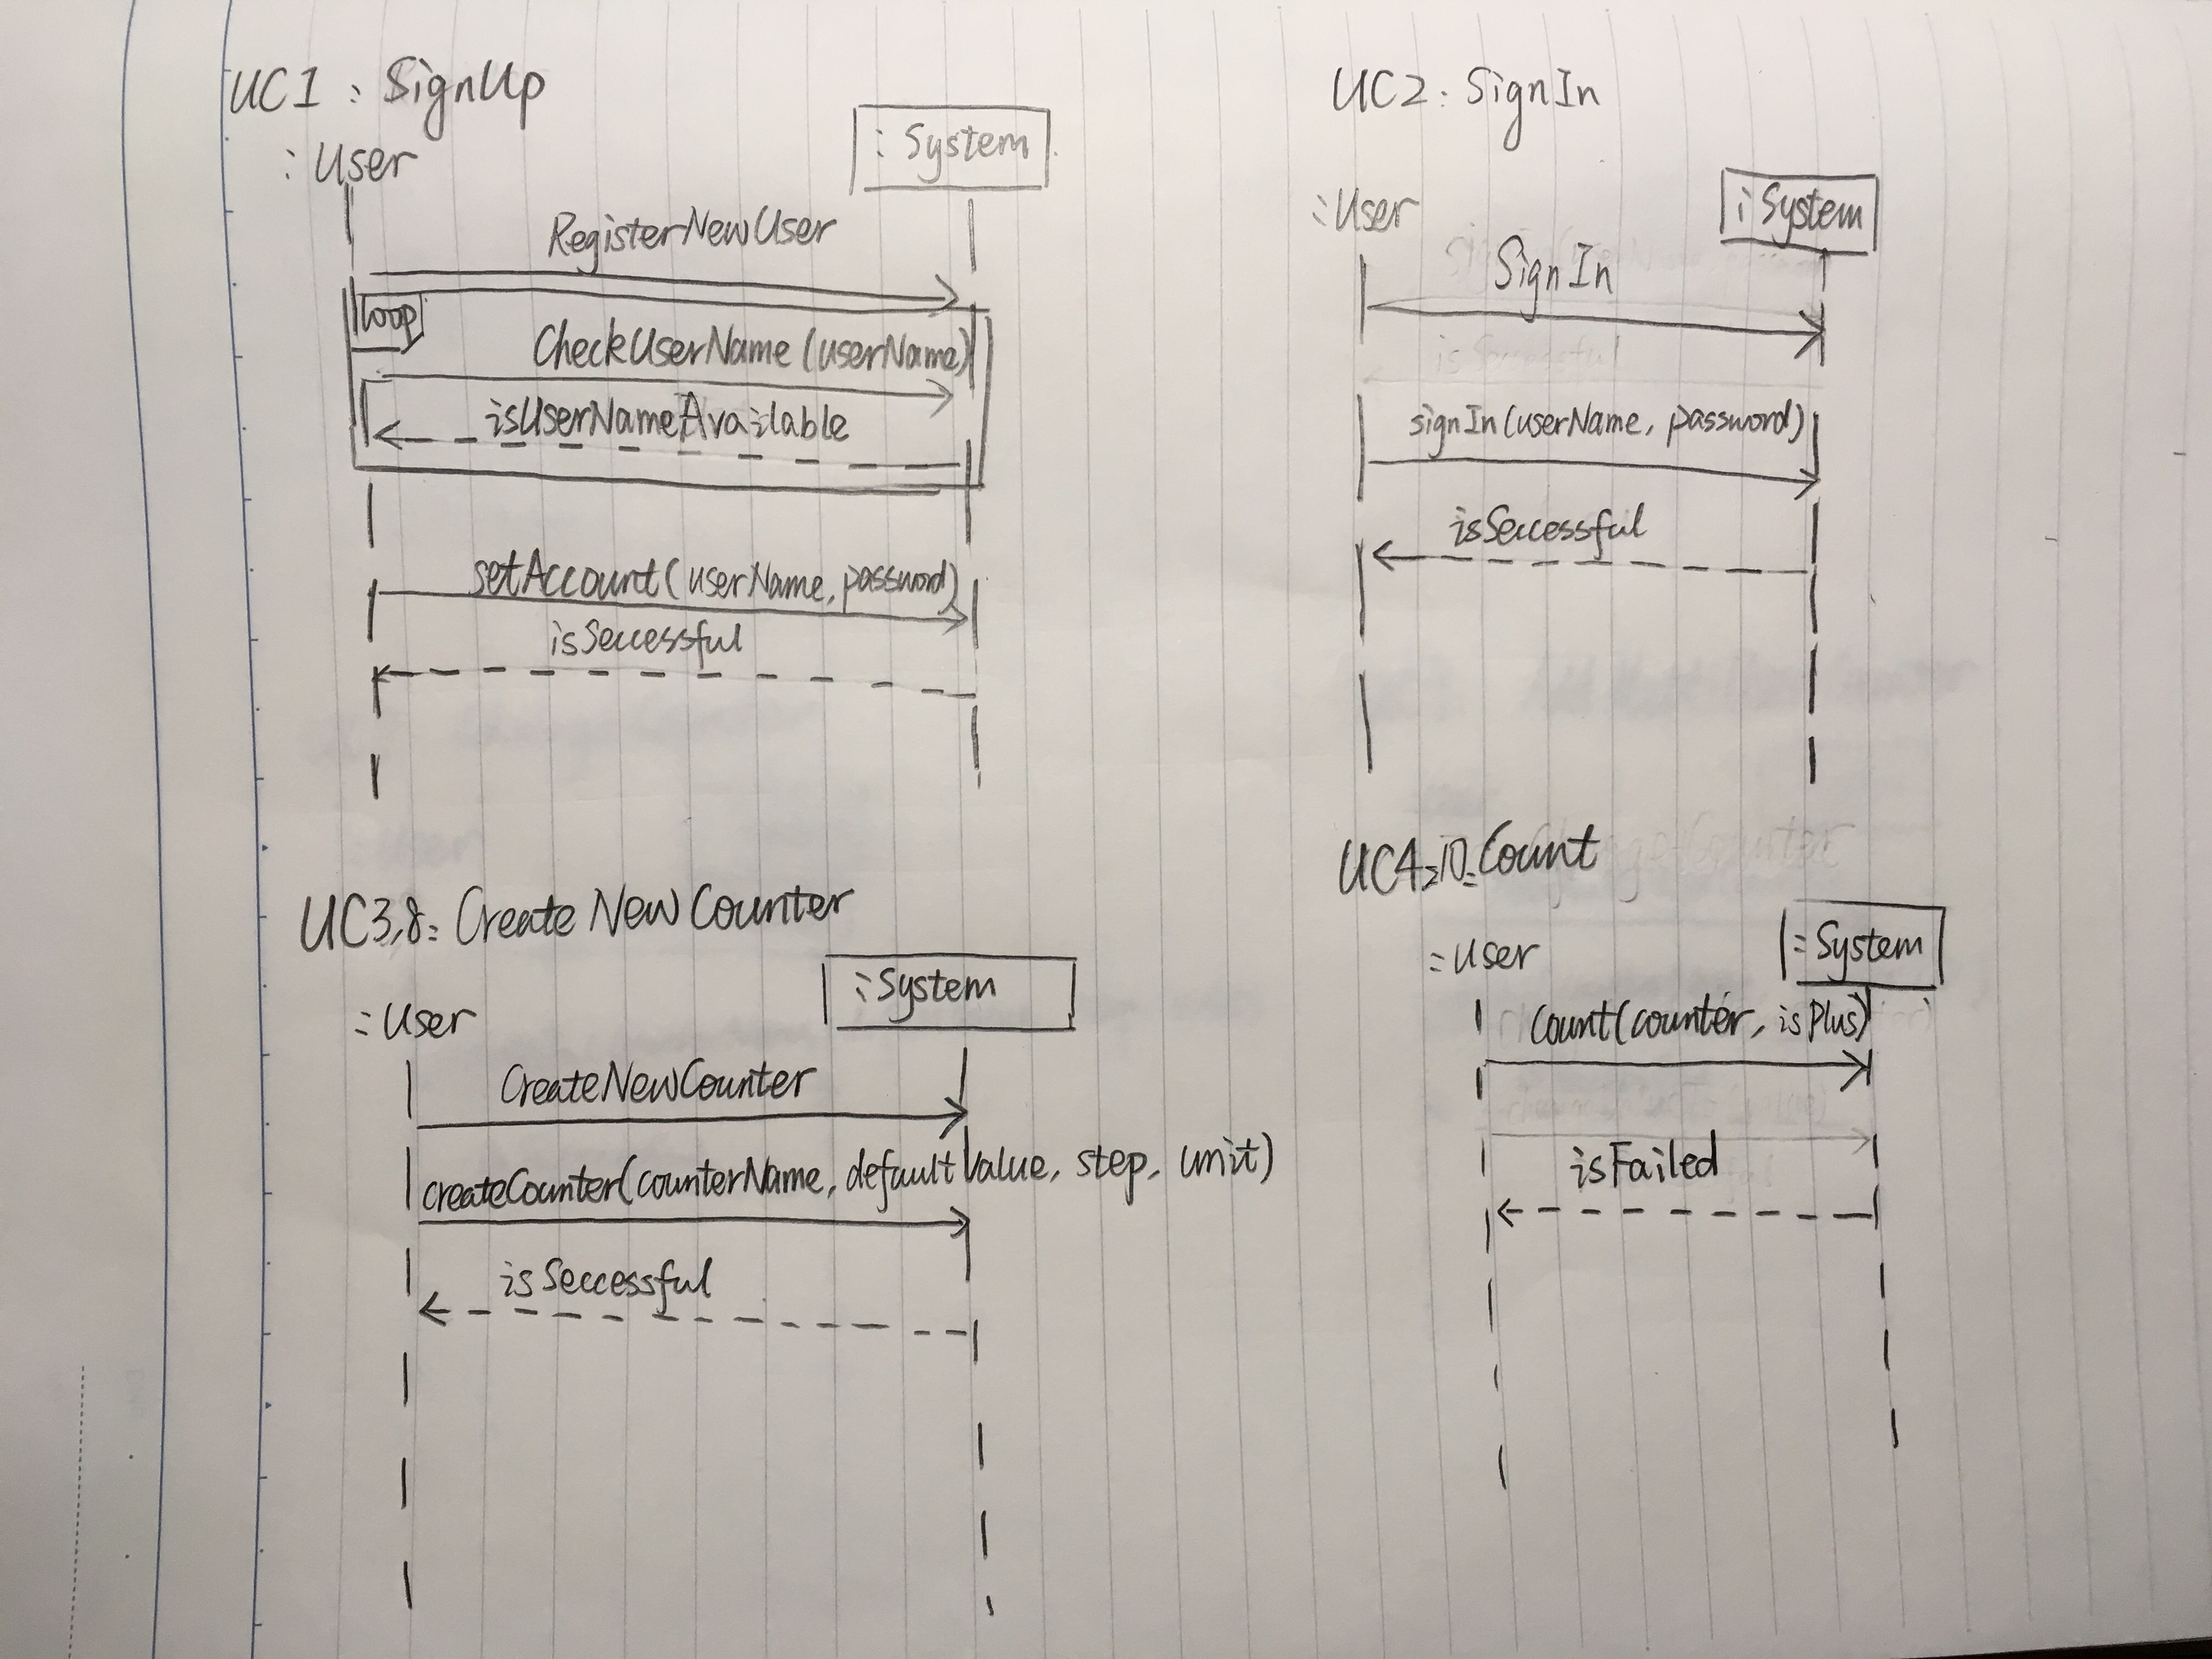 UC1: SignUp
:User
:System
RegisterNewUser
loop
CheckUserName(userName)
isUserNameAvailable
setAccount(userName, password)
isSeccessful
UC2: SignIn
:User
:System
SignIn
isSuccessful
signIn(userName, password)
isSeccessful
UC3,8: Create New Counter
:User
:System
CreateNewCounter
createCounter(counterName, defaultValue, step, unit)
isSeccessful
UC4,10: Count
:User
:System
Count(counter, isPlus)
isFailed